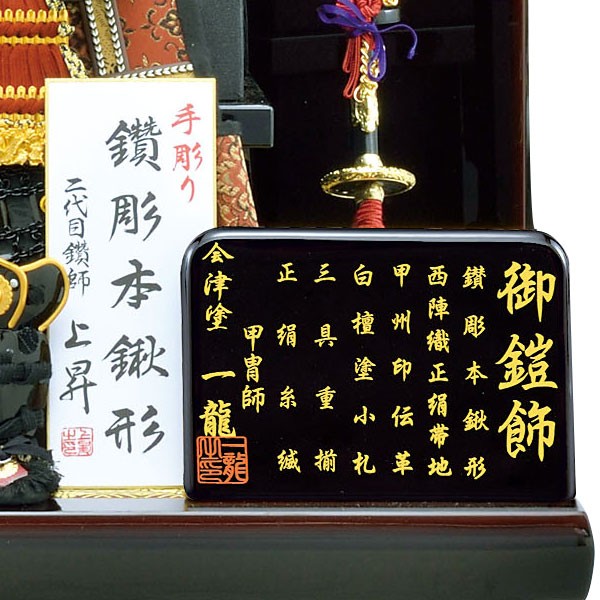 手彫り
鑽彫本鍬形
二代目鑽師
上昇
御鎧飾
鑚彫本鍬形
西陣織正絹帯地
甲州印伝革
白檀塗小札
三具重揃
正絹糸縅
甲冑師
一龍
会津塗
一龍